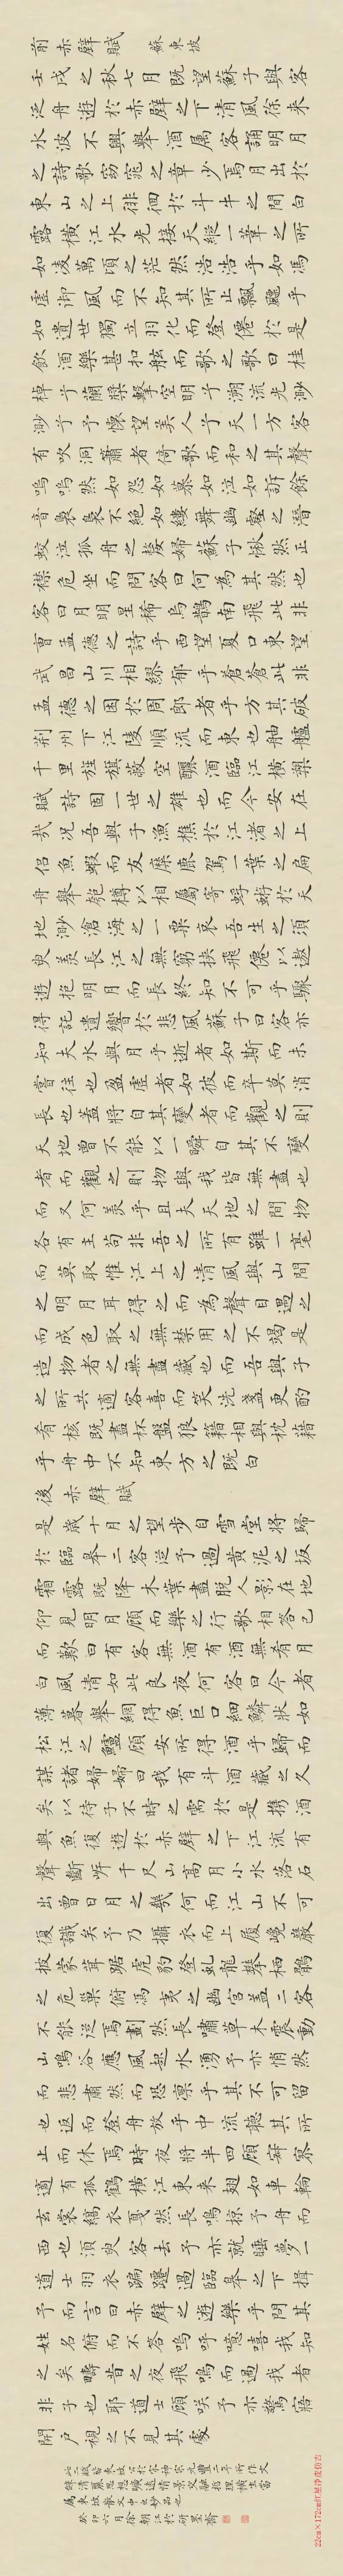 前赤壁賦 蘇東坡
壬戌之秋七月既望蘇子與客
泛舟遊於赤壁之下清風徐来
水波不興舉酒属客誦明月
之詩歌窈窕之章少焉月出於
東山之上徘徊於斗牛之間白
露橫江水光接天縱一葦之所
如凌萬頃之茫然浩浩乎如馮
虛御風而不知其所止飄飄乎
如遺世獨立羽化而登僊於是
飲酒樂甚扣舷而歌之歌曰桂
棹兮蘭槳擊空明兮溯流光渺
渺兮予懷望美人兮天一方客
有吹洞蕭者倚歌而和之其聲
嗚嗚然如怨如慕如泣如訴餘
音裊裊不絕如縷舞幽壑之潛
蛟泣孤舟之嫠婦蘇子愀然正
襟危坐而問客曰何為其然也
客曰月明星稀烏鵲南飛此非
曹孟德之詩乎西望夏口東望
武昌山川相繆郁乎蒼蒼此非
孟德之困於周郎者乎方其破
荆州下江陵順流而東也舳艫
千里旌旗蔽空釃酒臨江橫槊
賦詩固一世之雄也而今安在
哉况吾與子漁樵於江渚之上
侣魚蝦而友麋鹿駕一葉之扁
舟舉匏樽以相屬寄蜉蝣於天
地渺滄海之一粟哀吾生之須
臾羡長江之無窮挾飛僊以遨
遊抱明月而長終知不可乎驟
得託遺響於悲風蘇子曰客亦
知夫水與月乎逝者如斯而未
嘗往也盈虛者如彼而卒莫消
長也蓋將自其變者而觀之則
天地曾不能以一瞬自其不變
者而觀之則物與我皆無盡也
而又何羡乎且夫天地之間物
各有主苟非吾之所有雖一毫
而莫取惟江上之清風與山間
之明月耳得之而為聲目遇之
而成色取之無禁用之不竭是
造物者之無盡藏也而吾與子
之所共適客喜而笑洗盞更酌
肴核既盡杯盤狼籍相與枕藉
乎舟中不知東方之既白
後赤壁賦
是歲十月之望步自雪堂將歸
於臨皋二客從予過黄泥之坂
霜露既降木葉盡脱人影在地
仰見明月顧而樂之行歌相答已
而歎曰有客無酒有酒無肴月
白風清如此良夜何客曰今者
薄暮舉網得魚巨口細鱗狀如
松江之鱸顧安所得酒乎歸而
謀諸婦婦曰我有斗酒藏之久
矣以待子不時之需於是携酒
與魚復遊於赤壁之下江流有
聲斷岸千尺山高月小水落石
出曾日月之幾何而江山不可
復識矣予乃攝衣而上履巉巖
披蒙茸踞虎豹登虬龍攀栖鶻
之危巢俯馮夷之幽宫盖二客
不能從焉劃然長嘯草木震動
山鳴谷應風起水湧予亦悄然
而悲肅然而恐凛乎其不可留
也返而登舟放乎中流聽其所
止而休焉時夜將半四顧寂寥
適有孤鶴橫江東来翅如車輪
玄裳縞衣戛然長鳴掠予舟而
西也須臾客去予亦就睡夢一
道士羽衣蹁躚過臨皋之下揖
予而言曰赤壁之遊樂乎問其
姓名俯而不答嗚呼噫嘻我知
之矣疇昔之夜飛鳴而過我者
非子也耶道士顧咲予亦驚寤
開戶視之不見其處
22cm×172cm红星净皮仿古